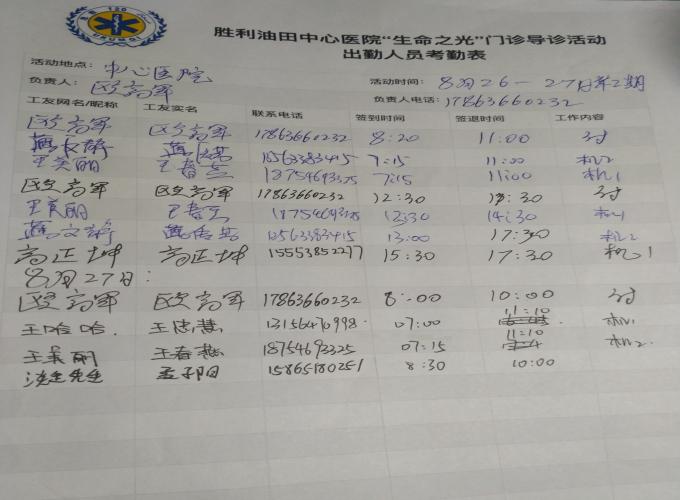 120
胜利油田中心医院"生命之光"门诊导诊活动
出勤人员考勤表
活动地点: 中心医院
活动时间: 8月26-27日第2期
负责人: 高军
负责人电话: 17863660232
工友网名/昵称 工友实名 联系电话 签到时间 签退时间 工作内容
高军 高军 17863660232 8:20 11:00
13563383415 7:15 11:00 机2
王美丽 王春燕 18754693325 7:15 11:00 机1
高军 高军 17863660232 12:30 :30
王美丽 王春 18754693325 12:30 14:30 机1
13563383415 13:00 17:30 机2
高正坤 高正坤 15553852277 15:30 17:30 机1
8月27日:
高军 高军 17863660232 8:00 10:00
王哈哈. 王志慧 13156470998. 07:00 11:10 机1
王美丽 王春燕 18754693325 07:15 11:10 机2
先生 孟子阳 15865180251 8:30 10:00